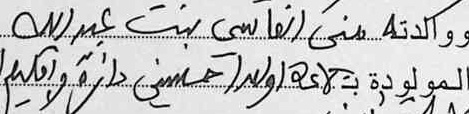 ووالدته منى الفاسي بنت عبد الله
المولودة ب اولاد احسيني دائرة واقليم